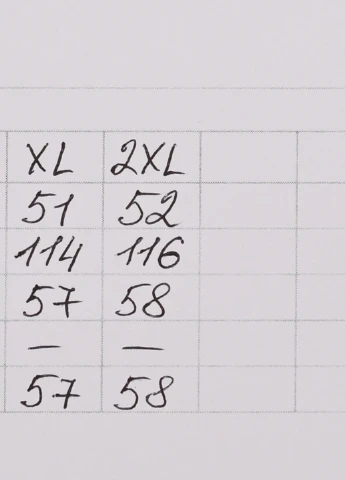 XL 2XL
51 52
114 116
57 58
— —
57 58